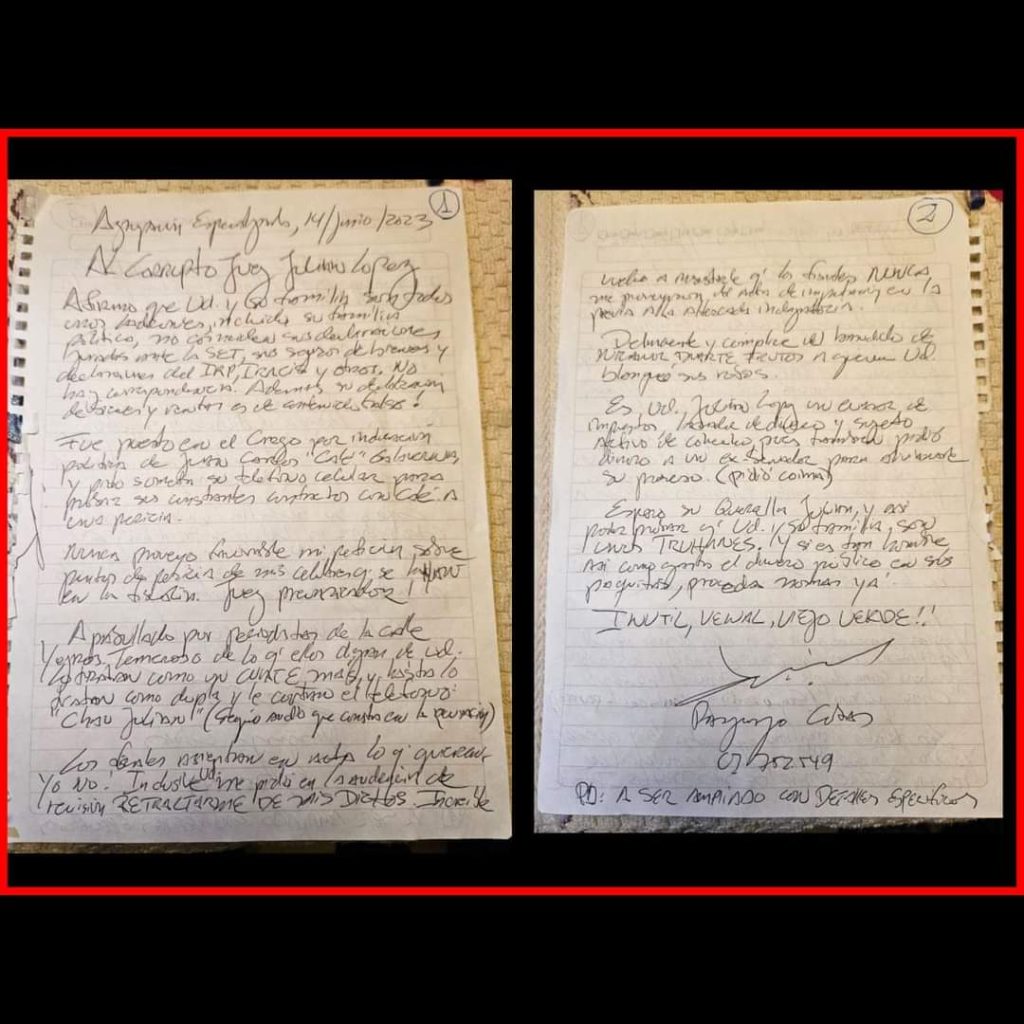 1
Agrupación Especializada, 14/Junio/2023
Al Corrupto Juez Julián López
Afirmo que Ud. y su familia son todos
unos ladrones, incluida su familia
política, no coinciden sus declaraciones
juradas ante la SET, sus seguros de bienes y
declaraciones del IRP, IRACIS y otros. No
hay correspondencia. Además su declaración
de bienes y rentas es de contenido falso!
Fue puesto en el Cargo por indicación
política de Juan Carlos "Calé" Galaverna,
y pido someta su teléfono celular para
probar sus constantes contactos con Calé a
una pericia.
Nunca proveyo favorable mi petición sobre
puntos de pericia de mis celulares q' se
en la fiscalía. Juez prevaricador!
Apabullado por periodistas de la calle
y otros, temeroso de lo q' ellos digan de Ud.
Lo tratan como un CUATE más, y hasta lo
tratan como dupla y le cortan el teléfono:
"Chau Julián" (según audio que consta en la)
Los fiscales asientan en acta lo q' quieren,
Yo NO! Incluso Ud. me pidió en la audiencia de
revisión RETRACTARME DE MIS DICHOS. Increíble
2
vuelvo a q' los fiscales NUNCA
me proveyeron el acta de imputación en la
previa a la indagatoria.
Delincuente y cómplice del homicidio de
NICANOR DUARTE FRUTOS a quien Ud.
blanqueó sus robos.
Es, Ud., Julián López un evasor de
impuestos, lavador de dinero y sujeto
activo de cohecho, pues también pidió
dinero a un ex Senador para
su proceso. (pidió coima)
Espero su Querella Julián, y así
poder probar q' Ud. y su familia, son
unos TRUHANES. Y si es tan hombre
así como el dinero público en sus
proceda nomás ya!
INUTIL, VENAL, VIEJO VERDE!!
PD: A SER AMPLIADO CON DETALLES ESPECIFICOS